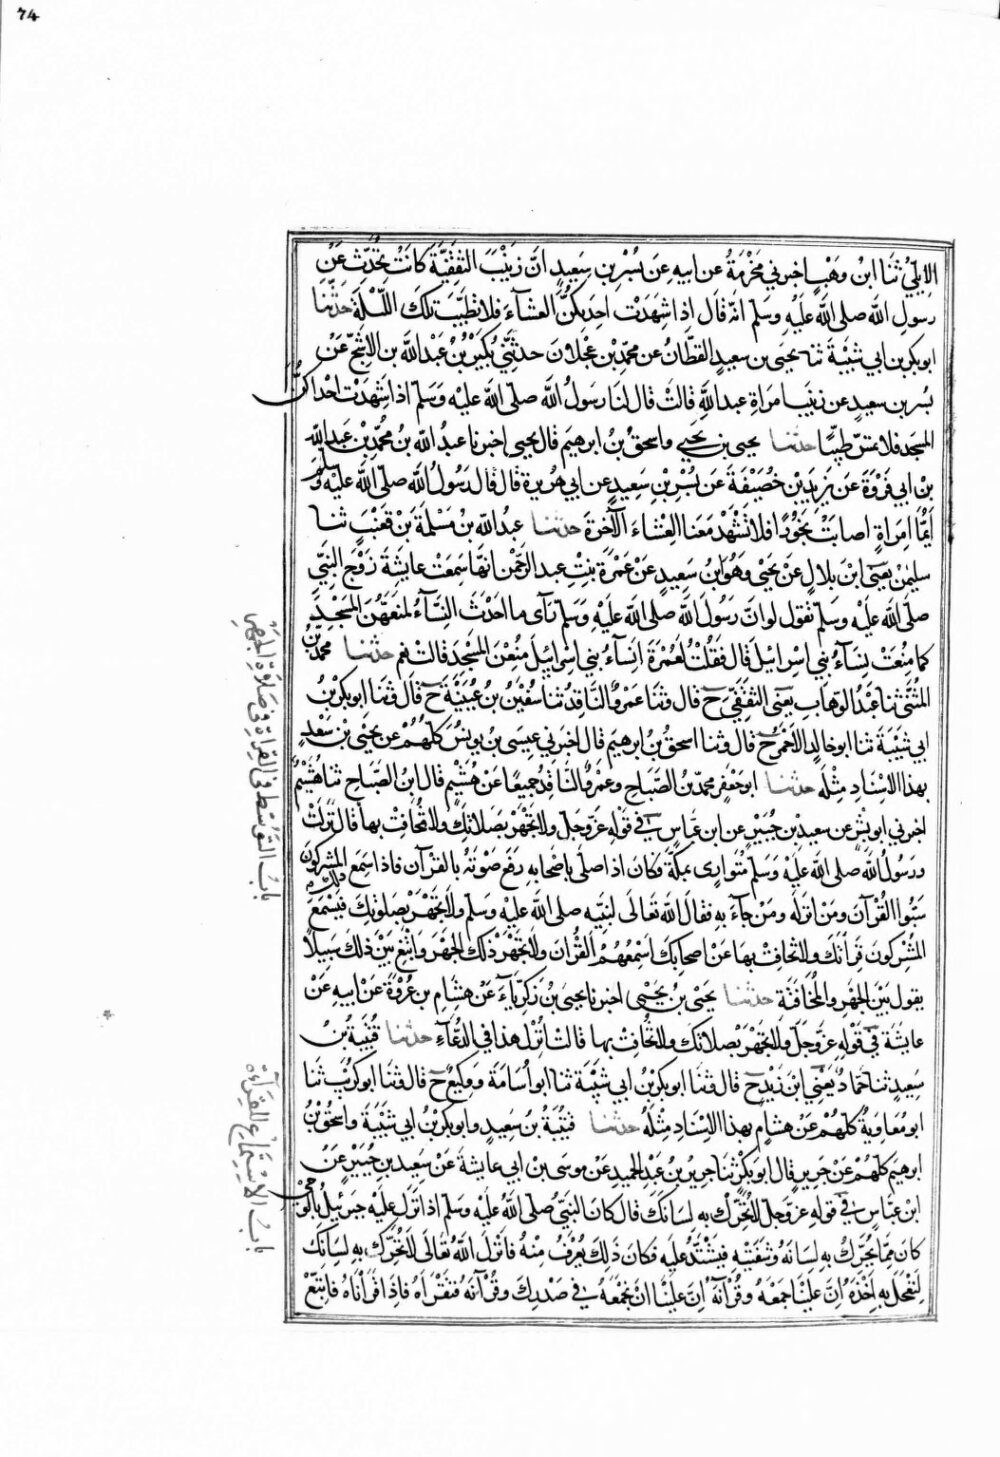 74
الايلي ثنا ابن وهب اخبرني مخرمة عن ابيه عن بسر بن سعيد ان زينب الثقفية كانت تحدث عن
رسول الله صلى الله عليه وسلم انه قال اذا شهدت احديكن العشاء فلا تطيب تلك الليلة حدثنا
ابو بكر بن ابي شيبة ثنا يحيى بن سعيد القطان عن محمد بن عجلان حدثني بكير بن عبد الله بن الاشج عن
بسر بن سعيد عن زينب امراة عبد الله قالت قال لنا رسول الله صلى الله عليه وسلم اذا شهدت احداكن
المسجد فلا تمس طيبا حدثنا يحيى بن يحيى واسحق بن ابرهيم قال يحيى اخبرنا عبد الله بن محمد بن عبد الله
بن ابي فروة عن يزيد بن خصيفة عن بسر بن سعيد عن ابي هريرة قال قال رسول الله صلى الله عليه وسلم
ايما امراة اصابت بخورا فلا تشهد معنا العشاء الآخرة حدثنا عبد الله بن مسلمة بن قعنب ثنا
سليمن يعني ابن بلال عن يحيى وهو ابن سعيد عن عمرة بنت عبد الرحمن انها سمعت عايشة زوج النبي
صلى الله عليه وسلم تقول لو ان رسول الله صلى الله عليه وسلم رآى ما احدث النساء لمنعهن المسجد
كما منعت نساء بني اسراييل قال فقلت لعمرة انساء بني اسراييل منعن المسجد قالت نعم حدثنا محمد بن
المثنى ثنا عبد الوهاب يعني الثقفي ح قال وثنا عمرو الناقد ثنا سفين بن عيينة ح قال وثنا ابو بكر بن
ابي شيبة ثنا ابو خالد الاحمر ح قال وثنا اسحق بن ابرهيم قال اخبرني عيسى بن يونس كلهم عن يحيى بن سعيد
بهذا الاسناد مثله حدثنا ابو جعفر محمد بن الصباح وعمرو الناقد جميعا عن هشيم قال ابن الصباح ثنا هشيم
اخبرني ابو بشر عن سعيد بن جبير عن ابن عباس في قوله عز وجل ولا تجهر بصلاتك ولا تخافت بها قال نزلت
ورسول الله صلى الله عليه وسلم متوارى بمكة فكان اذا صلى باصحابه رفع صوته بالقرآن فاذا سمع المشركون ذلك
سبوا القرآن ومن انزله ومن جاء به فقال الله تعالى لنبيه صلى الله عليه وسلم ولا تجهر بصلوتك فيسمع
المشركون قراتك ولا تخافت بها عن اصحابك اسمعهم القران ولا تجهر ذلك الجهر وابتغ بين ذلك سبيلا
يقول بين الجهر والمخافتة حدثنا يحيى بن يحيى اخبرنا يحيى بن زكرياء عن هشام بن عروة عن ابيه عن
عايشة في قوله عز وجل ولا تجهر بصلاتك ولا تخافت بها قالت انزل هذا في الدعاء حدثنا قتيبة بن
سعيد ثنا حماد يعني ابن زيد ح قال وثنا ابو بكر بن ابي شيبة ثنا ابو اسامة ووكيع ح قال وثنا ابو كريب ثنا
ابو معاوية كلهم عن هشام بهذا الاسناد مثله حدثنا قتيبة بن سعيد وابو بكر بن ابي شيبة واسحق بن
ابرهيم كلهم عن جرير قال ابو بكر ثنا جرير بن عبد الحميد عن موسى بن ابي عايشة عن سعيد بن جبير عن
ابن عباس في قوله عز وجل لا تحرك به لسانك قال كان النبي صلى الله عليه وسلم اذا نزل عليه جبرئيل بالوحي
كان مما يحرك به لسانه وشفتيه فيشتد عليه فكان ذلك يعرف منه فانزل الله تعالى لا تحرك به لسانك
لتعجل به اخذه ان علينا جمعه وقرآنه ان علينا ان نجمعه في صدرك وقرآنه فتقراه فاذا قرأناه فاتبع
باب التوسط في القراة في صلوة الجهر
باب الاستماع للقراءة